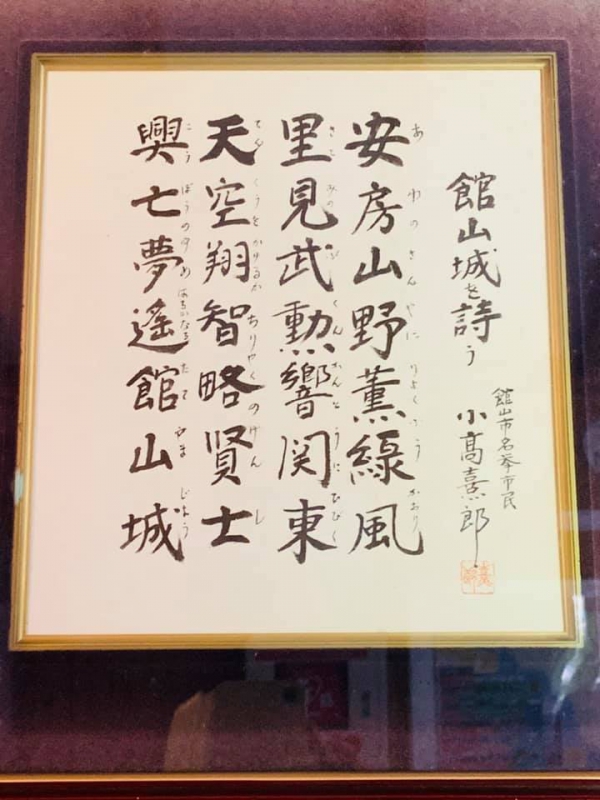 館山城を詩う
館山市名誉市民
小高熹郎
安房山野薫緑風
あわのさんやにりよくふうかおり
里見武勲響関東
さとみのぶくんかんとうにひびく
天空翔智略賢士
てんくうを ちりやくのけんし
興亡夢遙館山城
こうぼうのゆめはるかなるたてやまじよう